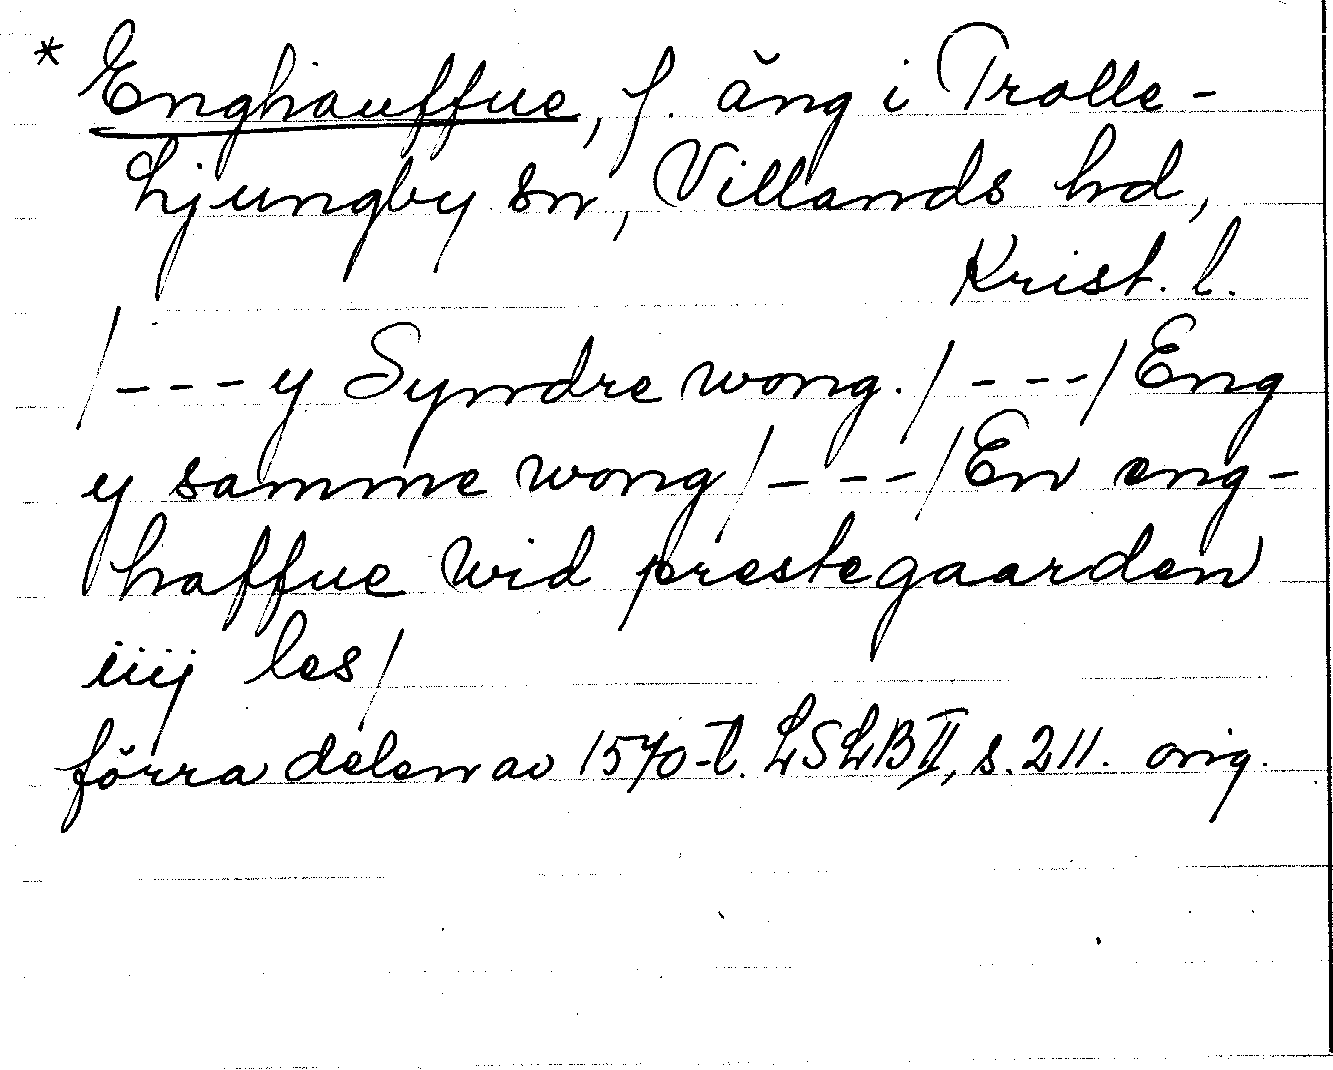 * Enghauffue, f. äng i Trolle-
Ljungby sn, Villands hd,
Krist. l.
/---y Syndre wong./---/Eng
y samme wong/---/En eng-
haffue wid prestegaarden
iiij les/
förra delen av 1570-t. LSLB II, s. 211. orig.